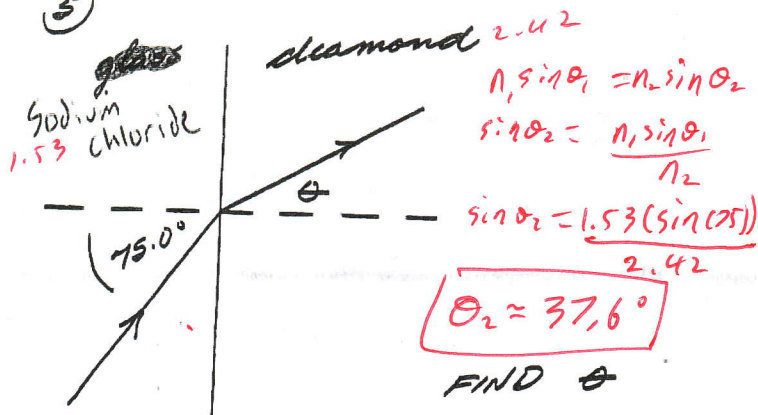 5
diamond 2.42
Sodium
1.53 chloride
n₁sinθ₁ = n₂sinθ₂
sinθ₂ = n₁sinθ₁
n₂
θ
75.0°
sinθ₂ = 1.53(sin(75))
2.42
θ₂ ≈ 37,6°
FIND θ